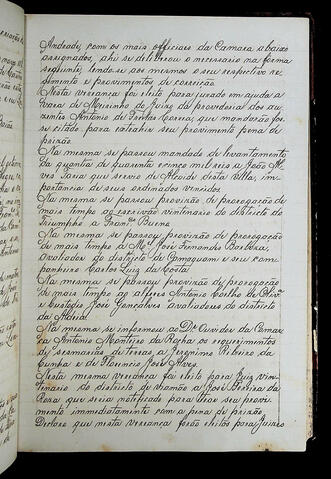 Andrade, com os mais officiaes da Camara abaixo
assignados, ahi se deliberou o necessario na forma
seguinte, lendo-se aos mesmos o seu respectivo re-
gimento e provimentos de correição
Nesta vereança foi eleito para jurado em ajuda a
vara de Meirinho do Juizo da provedoria dos au-
zentes Antonio de Freitas Correa, que mandarão fos-
se citado para exhibir seu provimento pena de
prizão
Na mesma se passou mandado de levantamento
da quantia de quarenta e cinco mil reis a João Al-
ves Faria que servio de Alcaide desta Villa, im-
portancia de seus ordenados vencidos
Na mesma se passou provizão de prorogação de
mais tempo ao escrivão vintenario do districto do
Triumpho a Bueno
Na mesma se passou provizão de prorogação
de mais tempo a M.el José Fernandes Barboza,
avaliador do districto de Camaquam e seu com-
panheiro Carlos Luiz da Costa
Na mesma se passou provizão de prorogação
de mais tempo ao alferes Antonio Coelho de Oliv.ra
e Custodio José Gonçalves avaliadores do districto
da Aldeia
Na mesma se informou ao D.r Ouvidor da Comar-
ca Antonio Monteiro da Rocha os requerimentos
de sesmarias de terras a Jeronimo Ribeiro da
Cunha e de Florencio José Alves
Nesta mesma vereança foi eleito para Juiz vin-
tenario do districto de Viamão a José Ferreira da
Roza que seria notificado para tirar seu provi-
mento immediatamente com a pena de prizão
Declaro que nesta vereança forão eleitos para Juizes